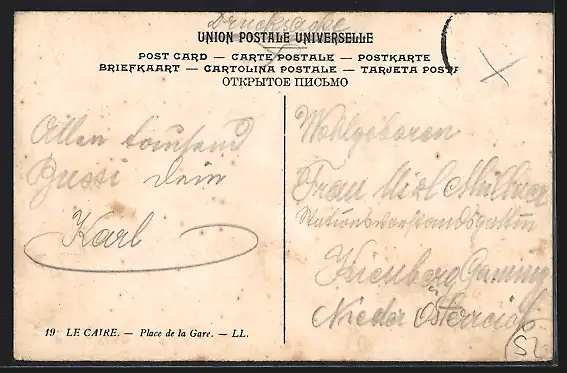 Drucksache
UNION POSTALE UNIVERSELLE
POST CARD — CARTE POSTALE — POSTKARTE
BRIEFKAART — CARTOLINA POSTALE — TARJETA POSTA
ОТКРЫТОЕ ПИСЬМО
Allen tausend
Bussi dein
Karl
Wohlgeboren
Frau Mizl Müllner
Stationsvorstandsgattin
Kienberg Gaming
Nieder Österreich
19 LE CAIRE. — Place de la Gare. — LL.